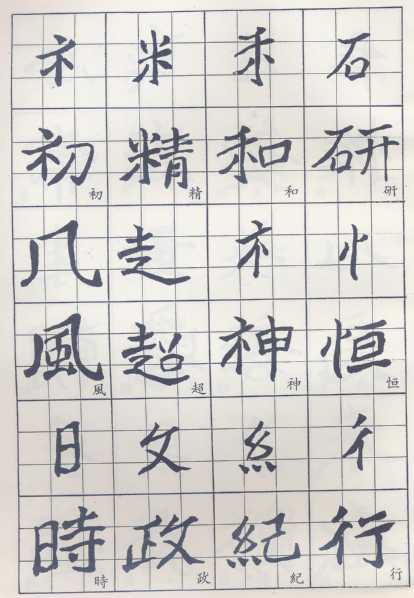 衤 米 禾 石
初 精 和 研
初 精 和 研
几 走 礻 忄
風 超 神 恒
風 超 神 恒
日 攵 糸 彳
時 政 紀 行
時 政 紀 行